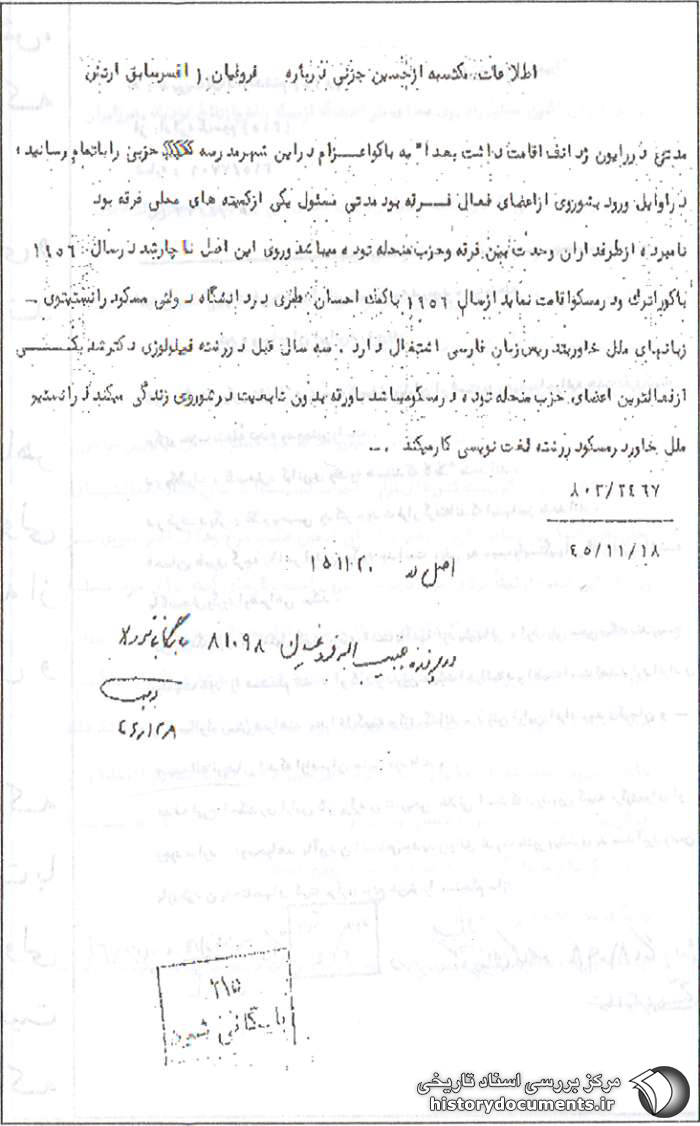 اطلاعات مکتسبه از حسین جزنی درباره فروغیان ( افسر سابق ارتش
مدتی در رایون ژدانف اقامت داشت بعدا" به باکو اعزام در این شهر مدرسه حزبی را باتمام رسانید ،
در اوایل ورود بشوروی از اعضای فعال فرقه بود مدتی مسئول یکی از کمیته های محلی فرقه بود
نامبرده از طرفداران وحدت بین فرقه و حزب منحله توده میباشد و روی این اصل ناچار شد در سال ۱۹۵۶
باکو را ترک و در مسکو اقامت نماید از سال ۱۹۵۶ با کمک احسان طبری در دانشگاه دولتی مسکو در انستیتوی –
زبانهای ملل خاور بتدریس زبان فارسی اشتغال دارد . سه سال قبل در رشته فیلولوژی دکتر شد یکی
از فعالترین اعضای حزب منحله توده در مسکو میباشد با ورقه بدون تابعیت در شوروی زندگی میکند در انستیو
ملل خاور در مسکو در رشته لغت نویسی کار میکند . –
۸۰۲/۲٤٦۷
٤۵/۱۱/۱۸
اصل در ۱۵۱۱۲۰
در پرونده حبیب اله فروغیان ۸۱۰۹۸ بایگانی شود
۴۶/۱۲/۸
۲۱۵
بایگانی شود
مرکز بررسی اسناد تاریخی
historydocuments.ir